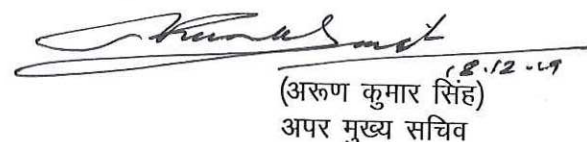 18.12.19
(अरूण कुमार सिंह)
अपर मुख्य सचिव